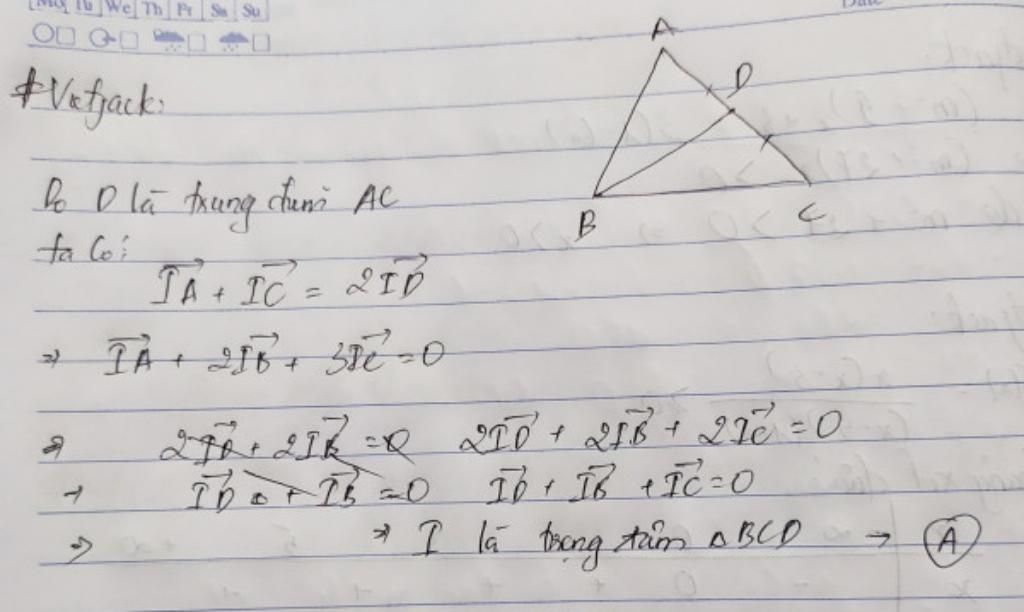 Mo Tu We Th Fr Sa Su
Date
* Vietjack:
A
D
B
C
Do D là trung điểm AC
ta có:
IA + IC = 2ID
=> IA + 2IB + 3IC = 0
=> 2ID + 2IB = 0 2ID + 2IB + 2IC = 0
→ ID + IB = 0 ID + IB + IC = 0
=> => I là trọng tâm ΔBCD → A